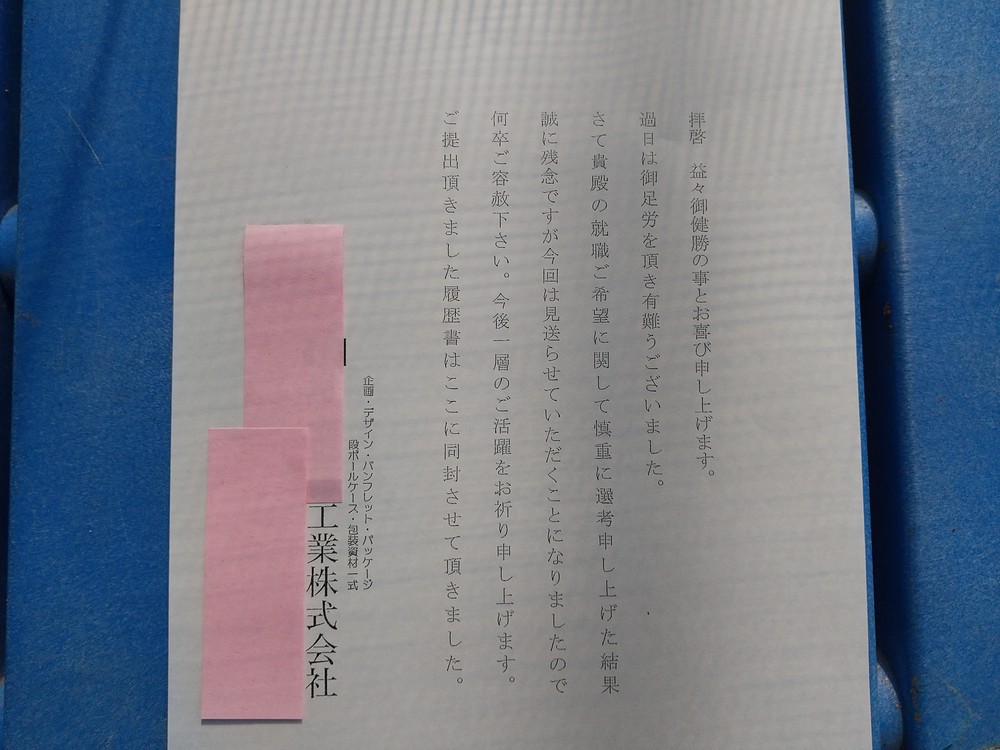 拝啓　益々御健勝の事とお喜び申し上げます。
過日は御足労を頂き有難うございました。
さて貴殿の就職ご希望に関して慎重に選考申し上げた結果
誠に残念ですが今回は見送らせていただくことになりましたので
何卒ご容赦下さい。今後一層のご活躍をお祈り申し上げます。
ご提出頂きました履歴書はここに同封させて頂きました。
企画・デザイン・パンフレット・パッケージ
段ボールケース・包装資材一式
工業株式会社